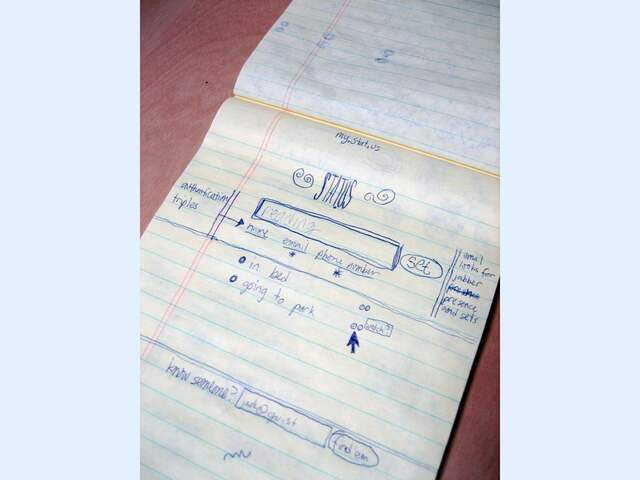 my.stat.us
STATUS
authentication
triples
reading
name email phone number
* *
set
looks for
jabber
presence
and sets
in bed
going to park
watch?
know someone?
find 'em